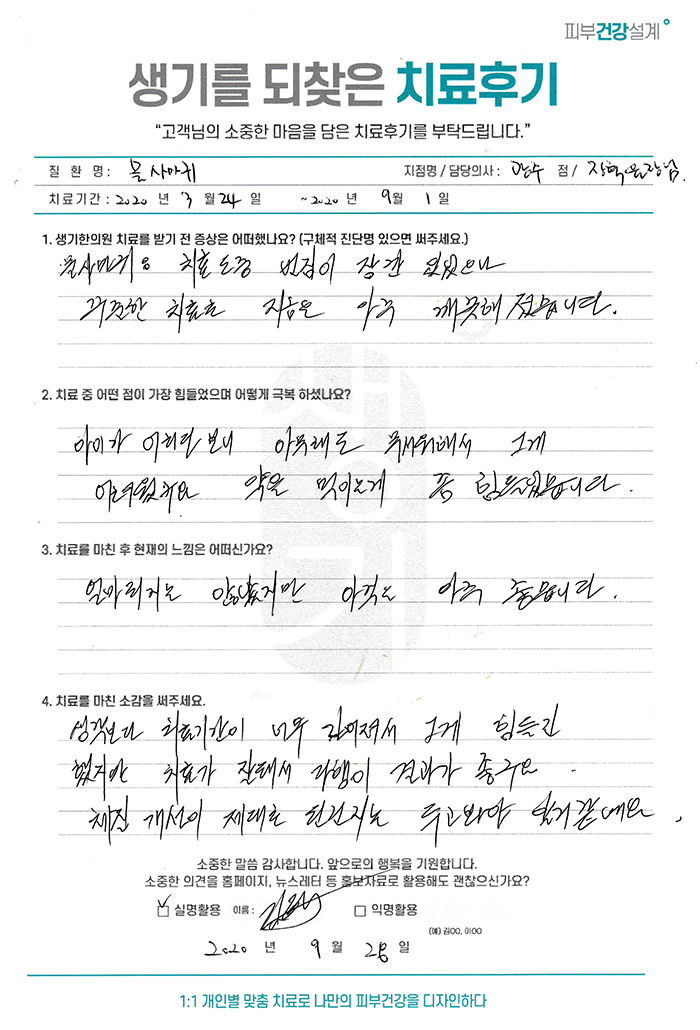 피부건강설계
생기를 되찾은 치료후기
"고객님의 소중한 마음을 담은 치료후기를 부탁드립니다."
질 환 명 : 물사마귀 지점명 / 담당의사 : 광주 점 / 원장님.
치료기간 : 2020 년 3 월 24 일 ~ 2020 년 9 월 1 일
1. 생기한의원 치료를 받기 전 증상은 어떠했나요? (구체적 진단명 있으면 써주세요.)
물사마귀 치료도중 번짐이 잠깐 있었으나
꾸준한 치료로 지금은 아주 깨끗해 졌습니다.
2. 치료 중 어떤 점이 가장 힘들었으며 어떻게 극복 하셨나요?
아이가 어리다 보니 아무래도 무서워해서 그게
어려웠구요 약을 먹이는게 좀 힘들었습니다.
3. 치료를 마친 후 현재의 느낌은 어떠신가요?
얼마되지는 않았지만 아직은 아주 좋습니다.
4. 치료를 마친 소감을 써주세요.
생각보다 치료기간이 너무 길어져서 그게 힘들긴
했지만 치료가 잘돼서 다행이 결과가 좋구요.
체질 개선이 제대로 된건지는 두고봐야 할거 같애요.
소중한 말씀 감사합니다. 앞으로의 행복을 기원합니다.
소중한 의견을 홈페이지, 뉴스레터 등 홍보자료로 활용해도 괜찮으신가요?
실명활용 이름 : 익명활용
(예) 김OO, 이OO
2020 년 9 월 28 일
1:1 개인별 맞춤 치료로 나만의 피부건강을 디자인하다